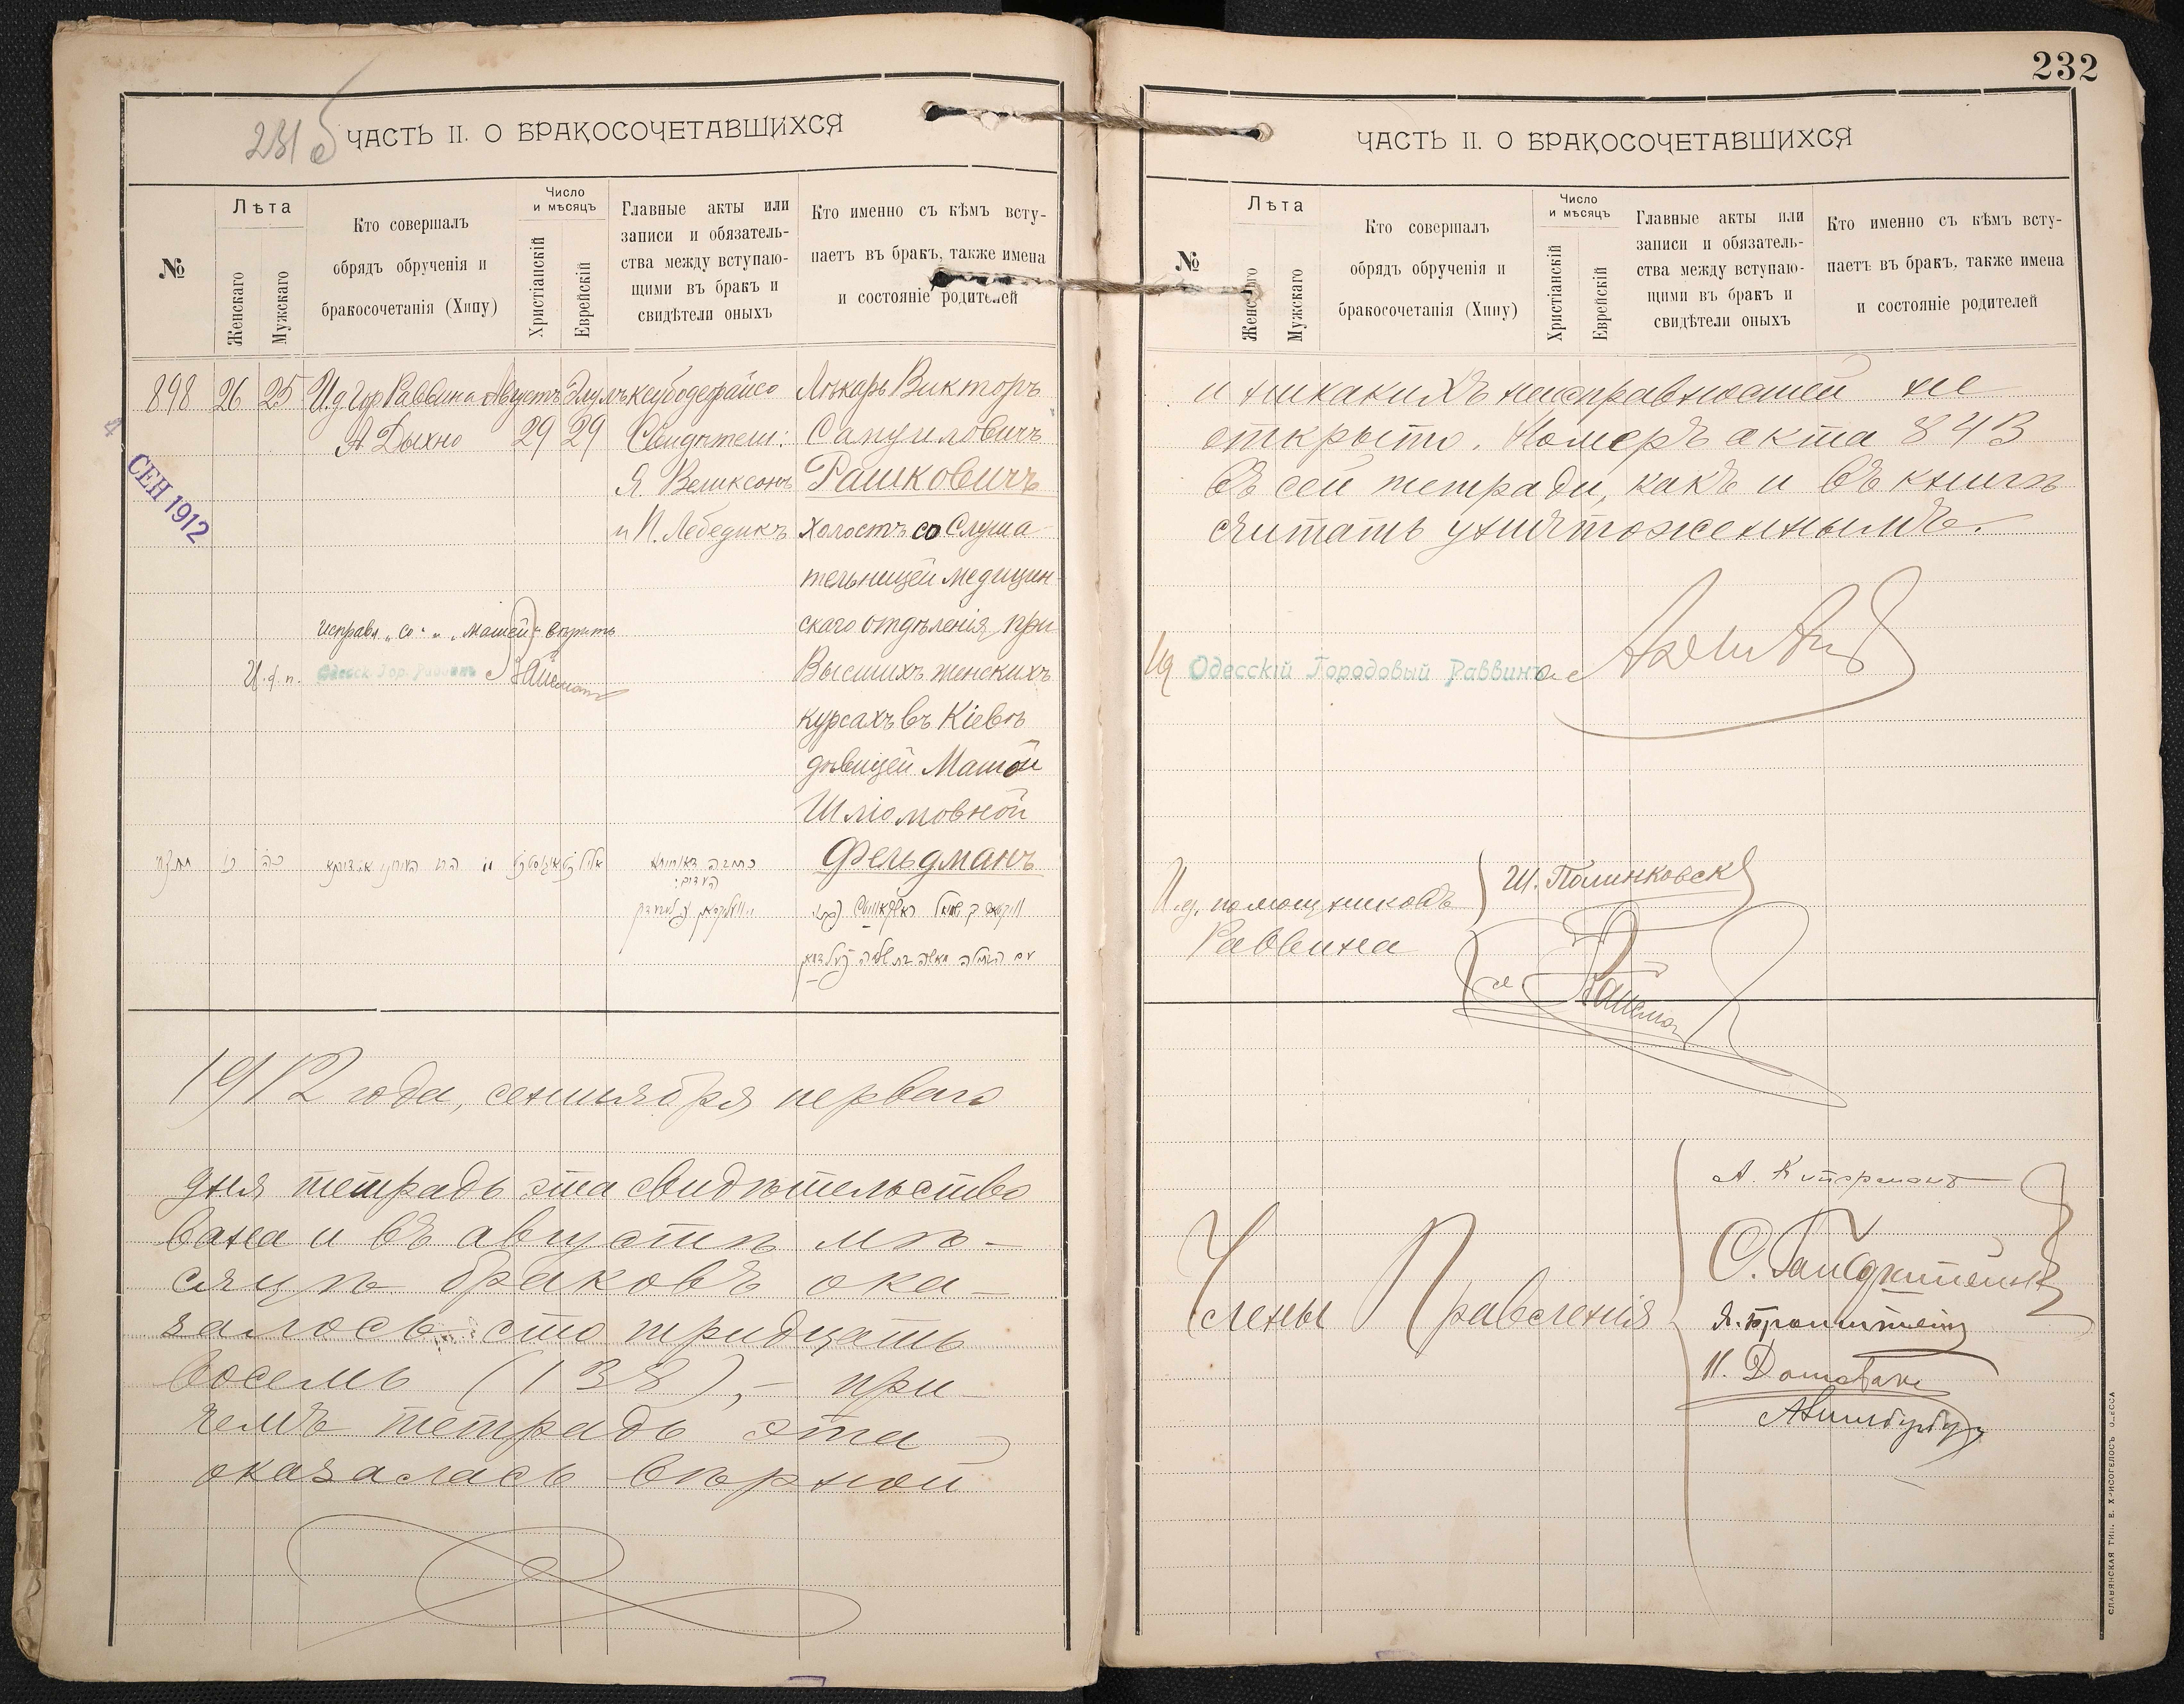 231 об
ЧАСТЬ II. О БРАКОСОЧЕТАВШИХСЯ
№
Лѣта
Женскаго
Мужскаго
Кто совершалъ
обрядъ обрученія и
бракосочетанія (Хипу)
Число
и мѣсяцъ
Христіанскій
Еврейскій
Главные акты или
записи и обязатель-
ства между вступаю-
щими въ бракъ и
свидѣтели оныхъ
Кто именно съ кѣмъ всту-
паетъ въ бракъ, также имена
и состояніе родителей
898 26 25 И.д. Гор. Раввина Августъ Элулъ ксубодерайсо Лѣкарь Викторъ
А Дыхно 29 29 Свидѣтели: Самуиловичъ
Я. Великсонъ Рашковичъ
и П. Лебедикъ холостъ со Слуша-
тельницей медицин-
скаго отдѣленія при
Высшихъ женскихъ
курсахъ въ Кіевѣ
дѣвицей Машой
Шліомовной
Фельдманъ
4 СЕН 1912
исправл. „со" и „Машей" вѣрить
И. д. п. Одесск. Гор. Раввинъ
כתובה דאורייתא
העדים:
1912 года, сентября перваго
дня тетрадь эта свидѣтельство
вана и въ августѣ мѣ-
сяцѣ браковъ ока-
залось сто тридцать
восемь (138),- при-
чемъ тетрадь эта
оказалась вѣрной
232
ЧАСТЬ II. О БРАКОСОЧЕТАВШИХСЯ
№
Лѣта
Женскаго
Мужскаго
Кто совершалъ
обрядъ обрученія и
бракосочетанія (Хипу)
Число
и мѣсяцъ
Христіанскій
Еврейскій
Главные акты или
записи и обязатель-
ства между вступаю-
щими въ бракъ и
свидѣтели оныхъ
Кто именно съ кѣмъ всту-
паетъ въ бракъ, также имена
и состояніе родителей
и никакихъ неисправностей не
открыто. Номеръ акта 843
въ сей тетради, какъ и въ книгѣ
считать уничтоженнымъ.
Ид Одесскій Городовый Раввинъ
И.д. помощниковъ Ш. Полинковскій
Раввина
Члены Правленія
Я. Бронштейнъ
СЛАВЯНСКАЯ ТИП. Е. ХРИСОГЕЛОСЪ ОДЕССА